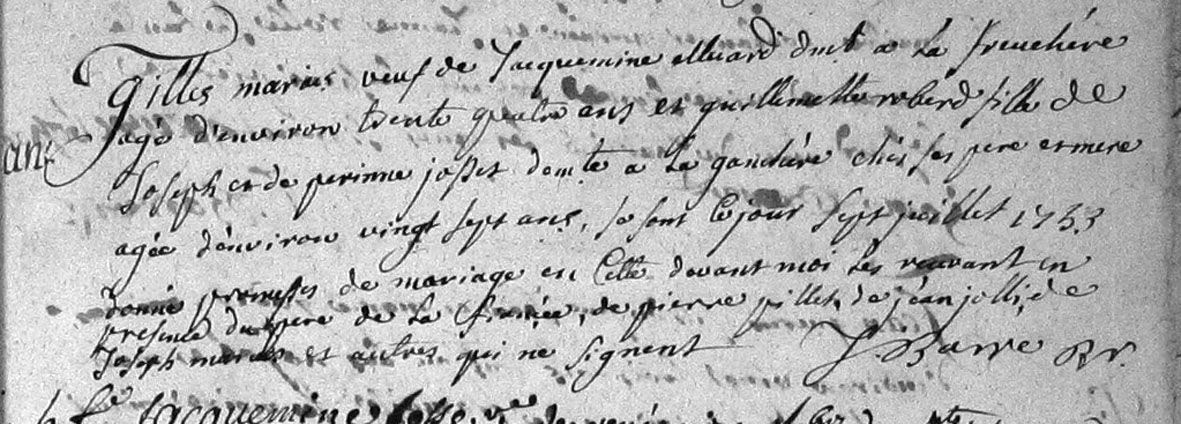 Gilles marais veuf de Jacquemine Alluard dmt a La freuchére
agé d'environ trente quatre ans et guillemette roberd fille de
Joseph et de perinne josset domte a La ganchére chés ses pere et mere
agée d'environ vingt sept ans, se sont Ce jour sept juillet 1753
donné promesses de mariage en Cette devant moi les recevant en
presence du pere de la fiancée, de pierre pillet, de jéan jolli, de
Joseph marais et autres qui ne signent J. Barre Rr.
Jacquemine